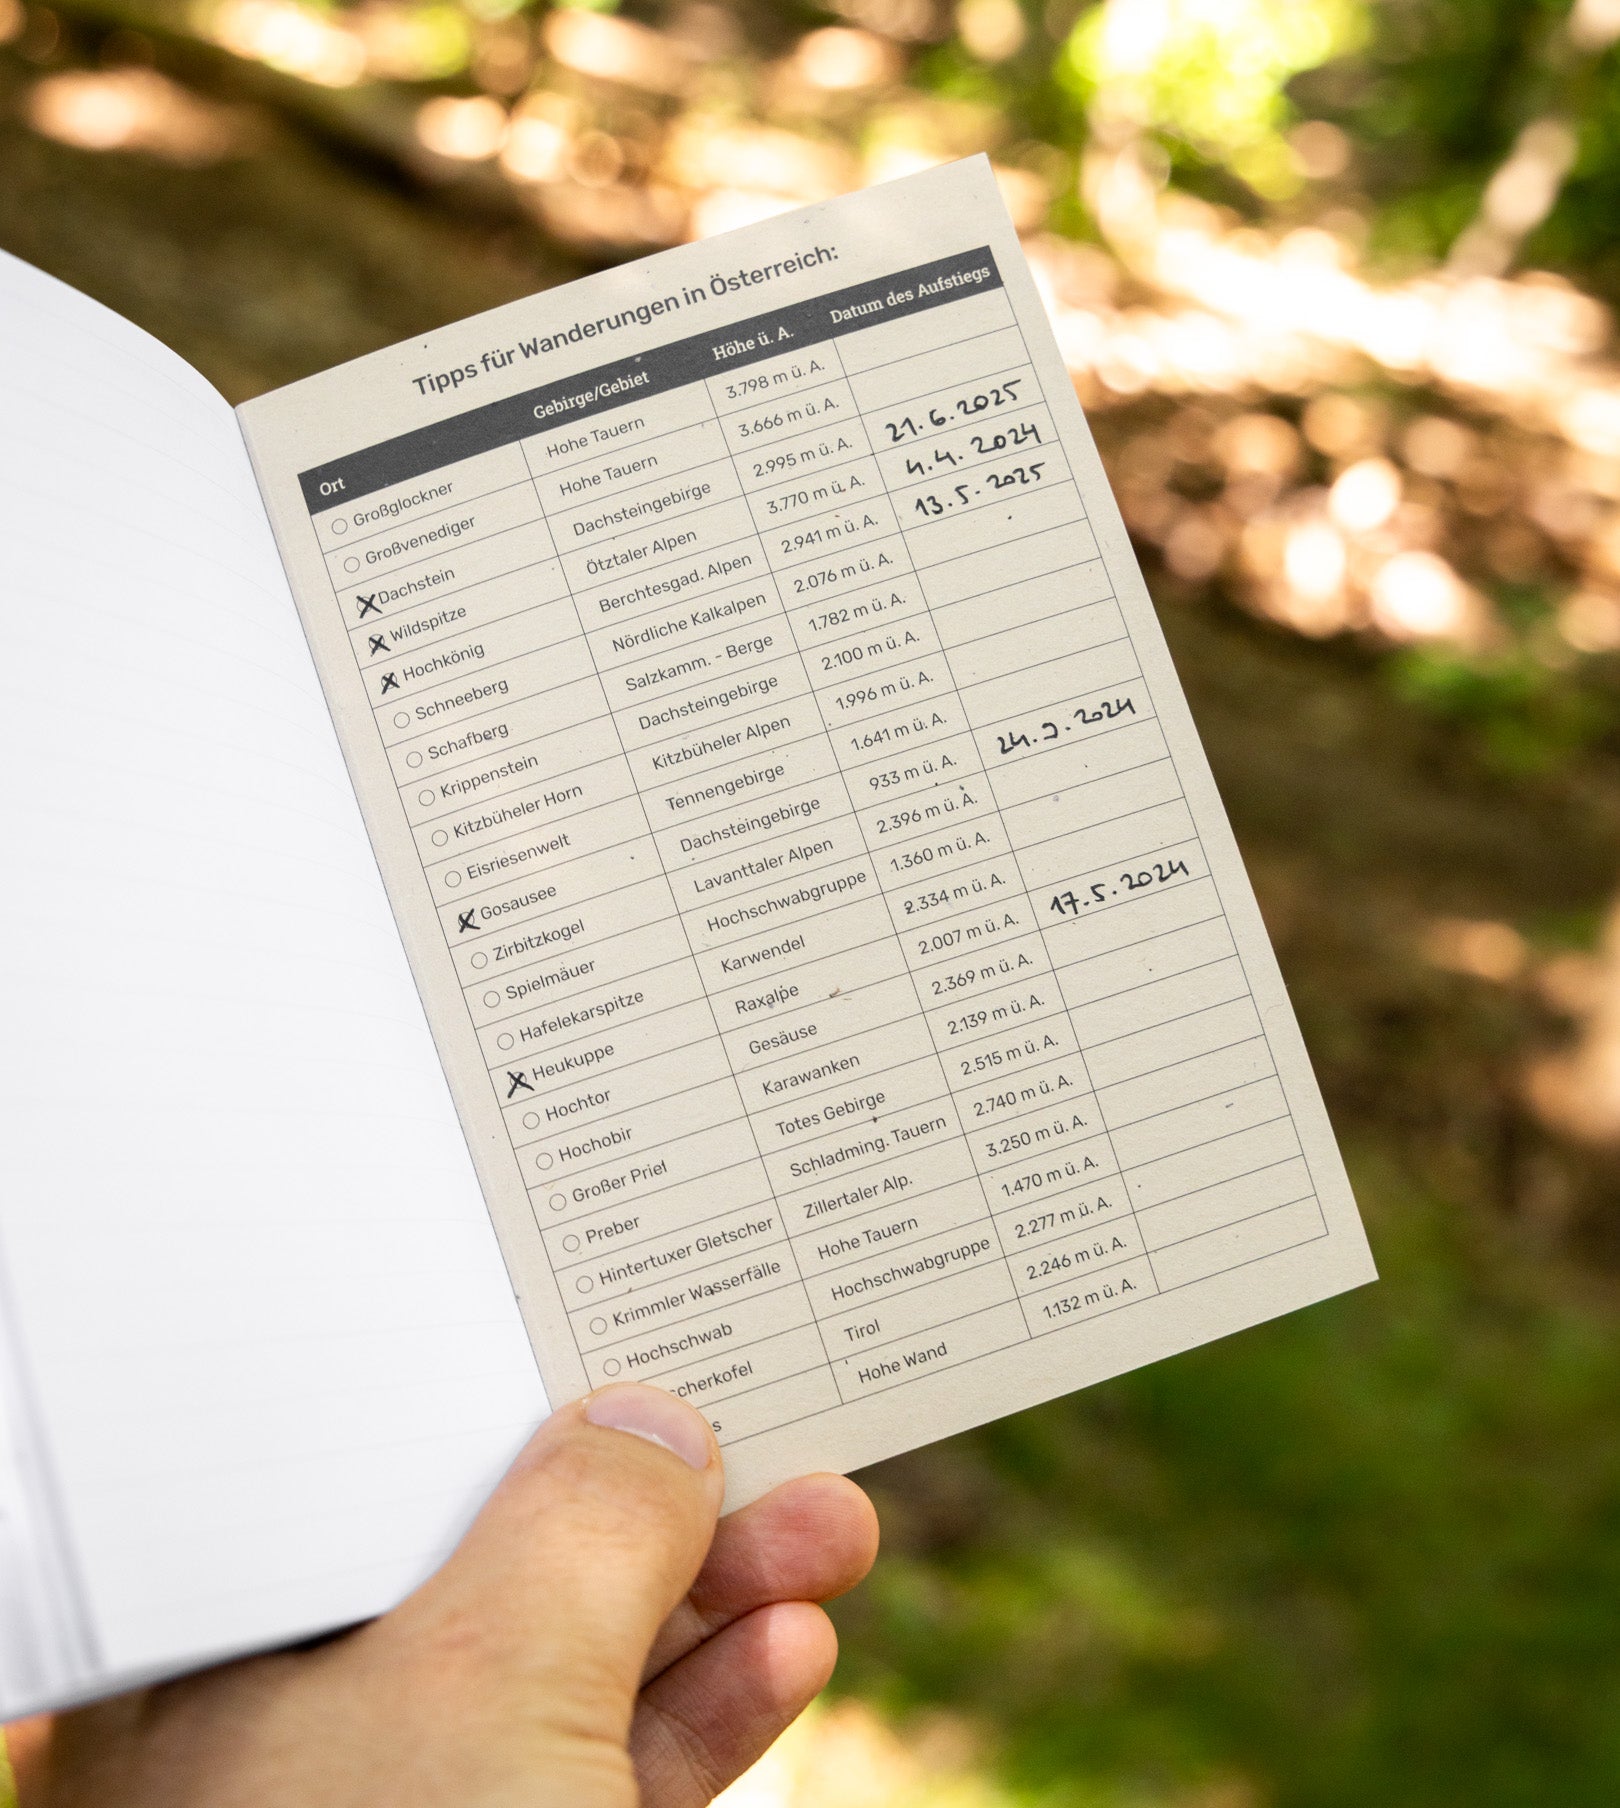 Tipps für Wanderungen in Österreich:
Ort Gebirge/Gebiet Höhe ü. A. Datum des Aufstiegs
Großglockner Hohe Tauern 3.798 m ü. A.
Großvenediger Hohe Tauern 3.666 m ü. A.
Dachstein Dachsteingebirge 2.995 m ü. A. 21.6.2025
Wildspitze Ötztaler Alpen 3.770 m ü. A. 4.4.2024
Hochkönig Berchtesgad. Alpen 2.941 m ü. A. 13.5.2025
Schneeberg Nördliche Kalkalpen 2.076 m ü. A.
Schafberg Salzkamm. - Berge 1.782 m ü. A.
Krippenstein Dachsteingebirge 2.100 m ü. A.
Kitzbüheler Horn Kitzbüheler Alpen 1.996 m ü. A.
Eisriesenwelt Tennengebirge 1.641 m ü. A.
Gosausee Dachsteingebirge 933 m ü. A.
Zirbitzkogel Lavanttaler Alpen 2.396 m ü. A.
Spielmäuer Hochschwabgruppe 1.360 m ü. A.
Hafelekarspitze Karwendel 2.334 m ü. A.
Heukuppe Raxalpe 2.007 m ü. A. 17.5.2024
Hochtor Gesäuse 2.369 m ü. A.
Hochobir Karawanken 2.139 m ü. A.
Großer Priel Totes Gebirge 2.515 m ü. A.
Preber Schladming. Tauern 2.740 m ü. A.
Hintertuxer Gletscher Zillertaler Alp. 3.250 m ü. A.
Krimmler Wasserfälle Hohe Tauern 1.470 m ü. A.
Hochschwab Hochschwabgruppe 2.277 m ü. A.
cherkofel Tirol 2.246 m ü. A.
s Hohe Wand 1.132 m ü. A.